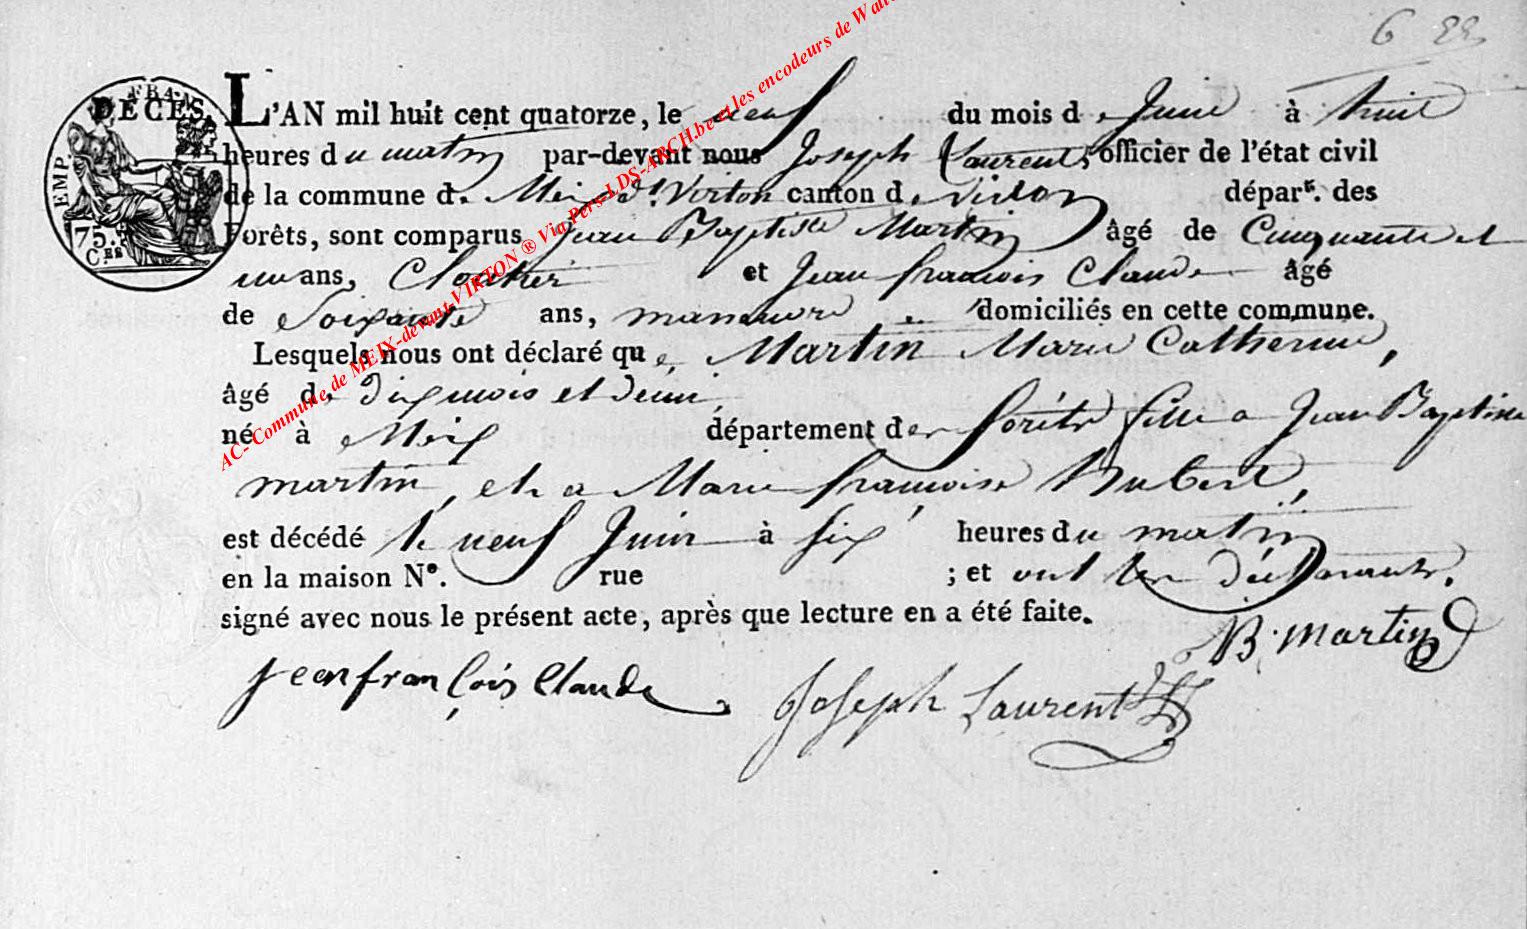 6
DÉCÈS.
EMP. FRAN.
75.
C.ES
L'AN mil huit cent quatorze, le neuf du mois de Juin à huit
heures du matin par-devant nous Joseph Laurent, officier de l'état civil
de la commune de Meix dt. Virton canton de Virton départ. des
Forêts, sont comparus Jean Baptiste Martin âgé de Cinquante et
un ans, Cloutier et Jean françois Claude âgé
de Soixante ans, manœuvre domiciliés en cette commune.
Lesquels nous ont déclaré que Martin Marie Catherine,
âgé de dix mois et demi
né à Meix département des forêts fille a Jean Baptiste
martin, et a Marie françoise Hubert,
est décédé le neuf Juin à six heures du matin
en la maison N°. rue ; et ont les déclarants
signé avec nous le présent acte, après que lecture en a été faite.
JB. martin
jean françois Claude
Joseph Laurent
AC- Commune de MEIX-devant-VIRTON ® Via Pers-LDS-ARCH.be et les encodeurs de